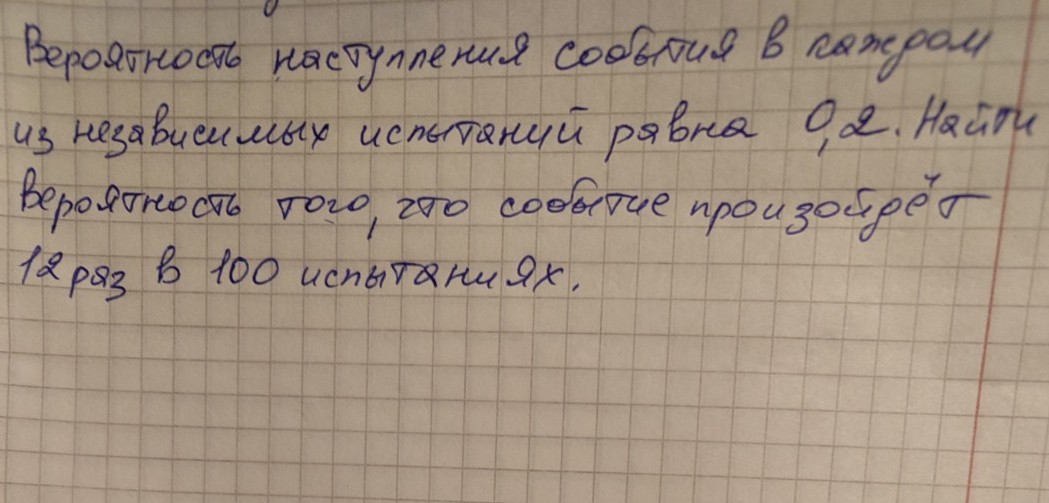 Вероятность наступления события в каждом
из независимых испытаний равна 0,2. Найти
вероятность того, что событие произойдёт
12 раз в 100 испытаниях.